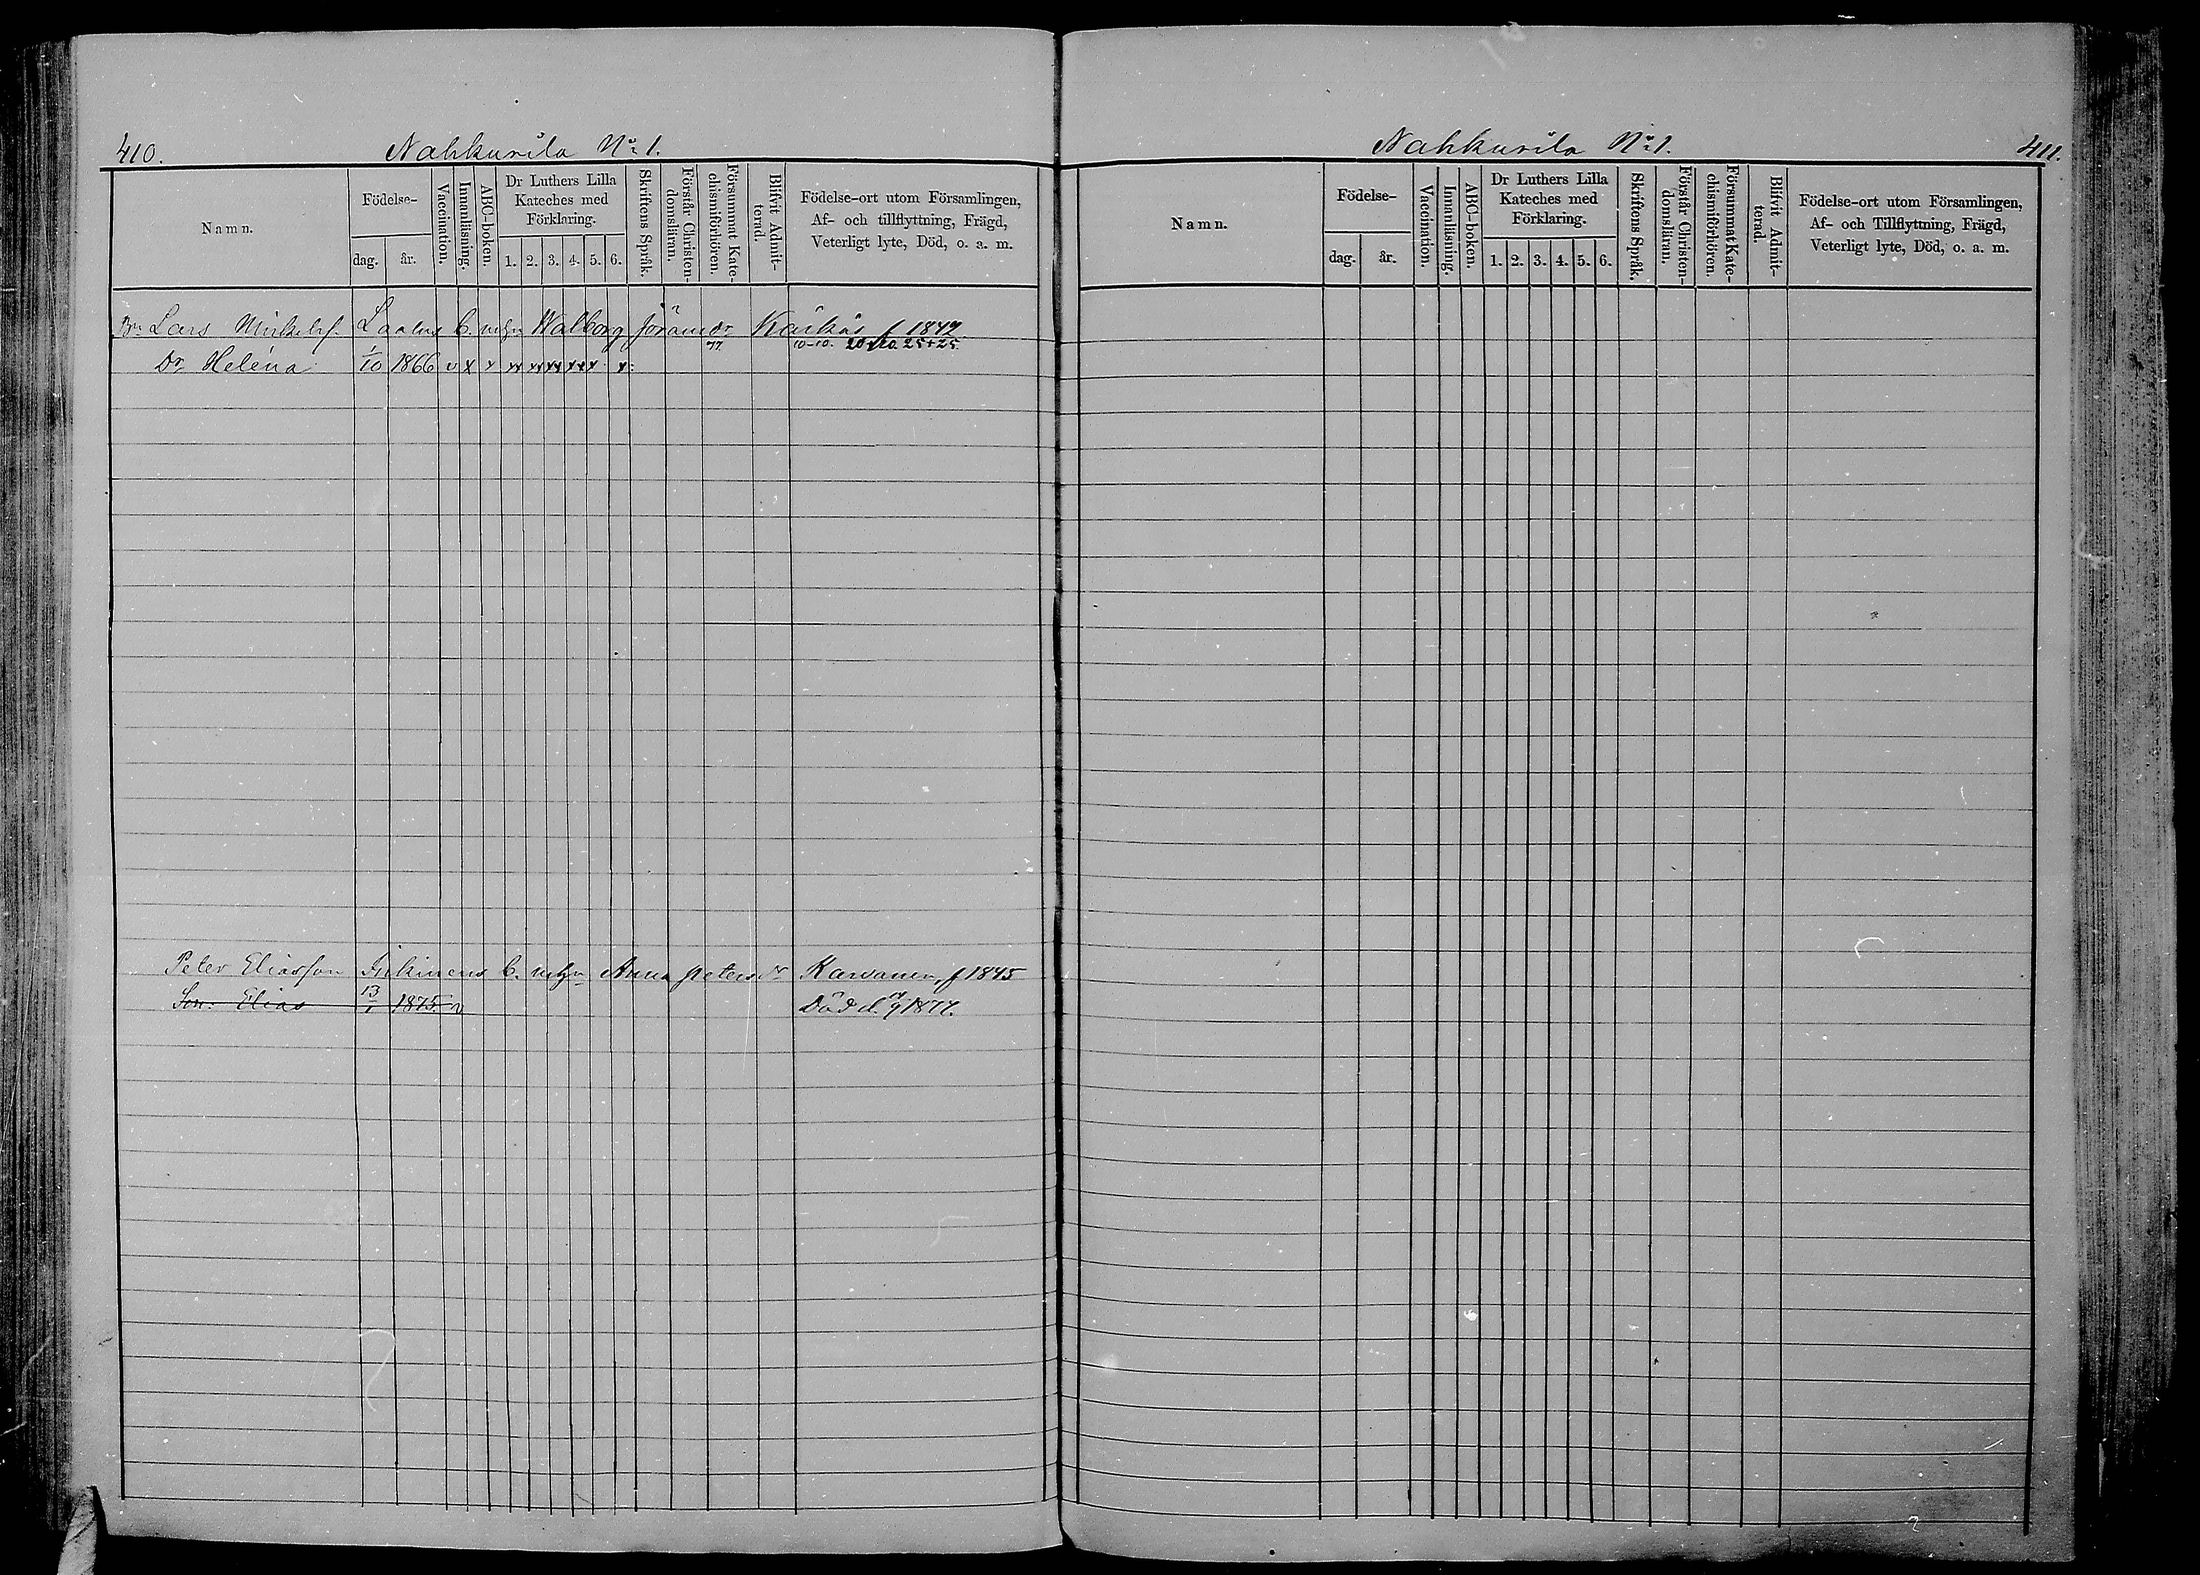 410.
Nahkurila No 1.
Namn.
Födelse-
dag. år.
Vaccination.
Innanläsning.
ABC-boken.
Dr Luthers Lilla Kateches med Förklaring.
1. 2. 3. 4. 5. 6.
Skriftens Språk.
Förstår Christendomsläran.
Försummat Katechismiförhören.
Blifvit Admitterad.
Födelse-ort utom Församlingen,
Af- och tillflyttning, Frägd,
Veterligt lyte, Död, o. a. m.
Lars Mickelsf. b. Walborg Karkäs f 1842
77 10-10. 25+25
Dr Helena 1/10 1866 v x x xx xx xx xx x x
Peter Eliasson b. Anna petersdr Karvanen, f 1845
Son: Elias 13/1 1875 v Död d. 1877.
Nahkurila No 1.
411.
Namn.
Födelse-
dag. år.
Vaccination.
Innanläsning.
ABC-boken.
Dr Luthers Lilla Kateches med Förklaring.
1. 2. 3. 4. 5. 6.
Skriftens Språk.
Förstår Christendomsläran.
Försummat Katechismiförhören.
Blifvit Admitterad.
Födelse-ort utom Församlingen,
Af- och Tillflyttning, Frägd,
Veterligt lyte, Död, o. a. m.